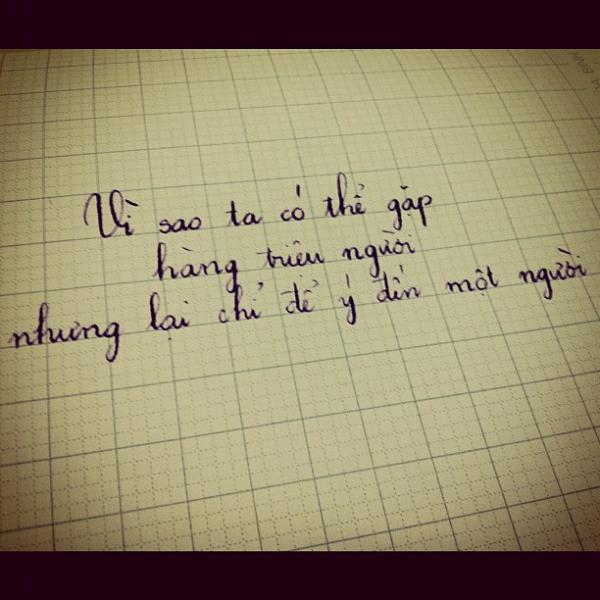 Vì sao ta có thể gặp
hàng triệu người
nhưng lại chỉ để ý đến một người